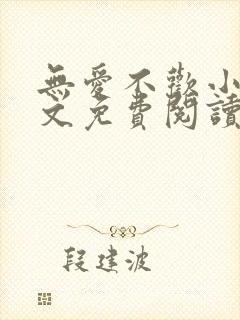 無愛不歡小
文免費閱讀
段建波